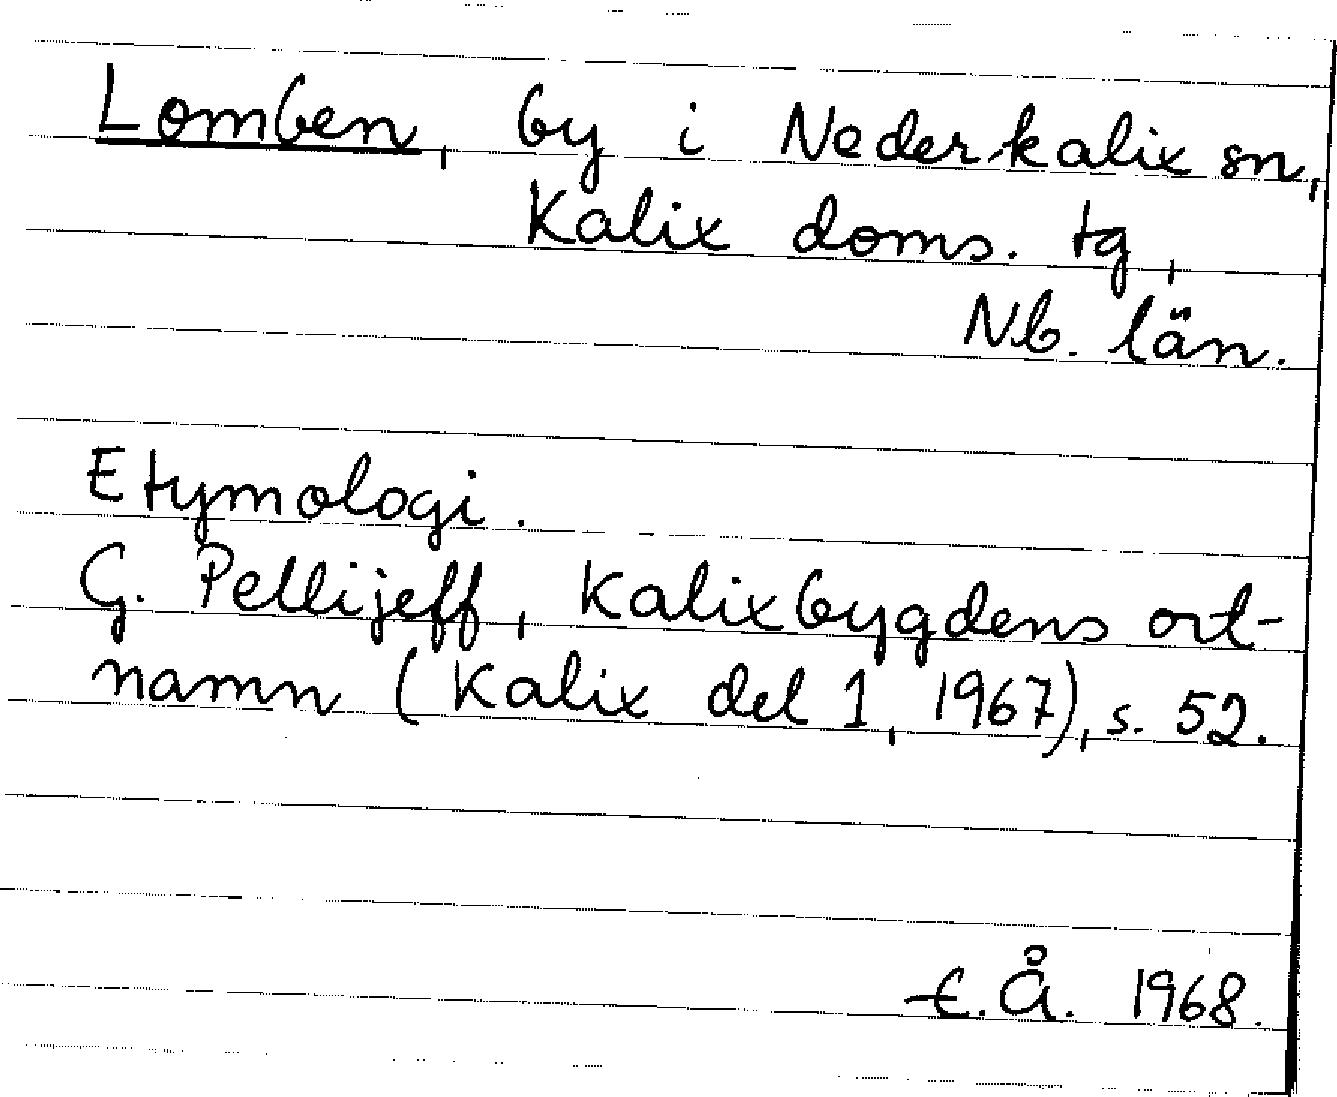 Lomben, by i Nederkalix sn,
Kalix doms. tg,
Nb. län.
Etymologi.
G. Pellijeff, Kalixbygdens ort-
namn (Kalix del 1, 1967), s. 52.
E.Å. 1968.